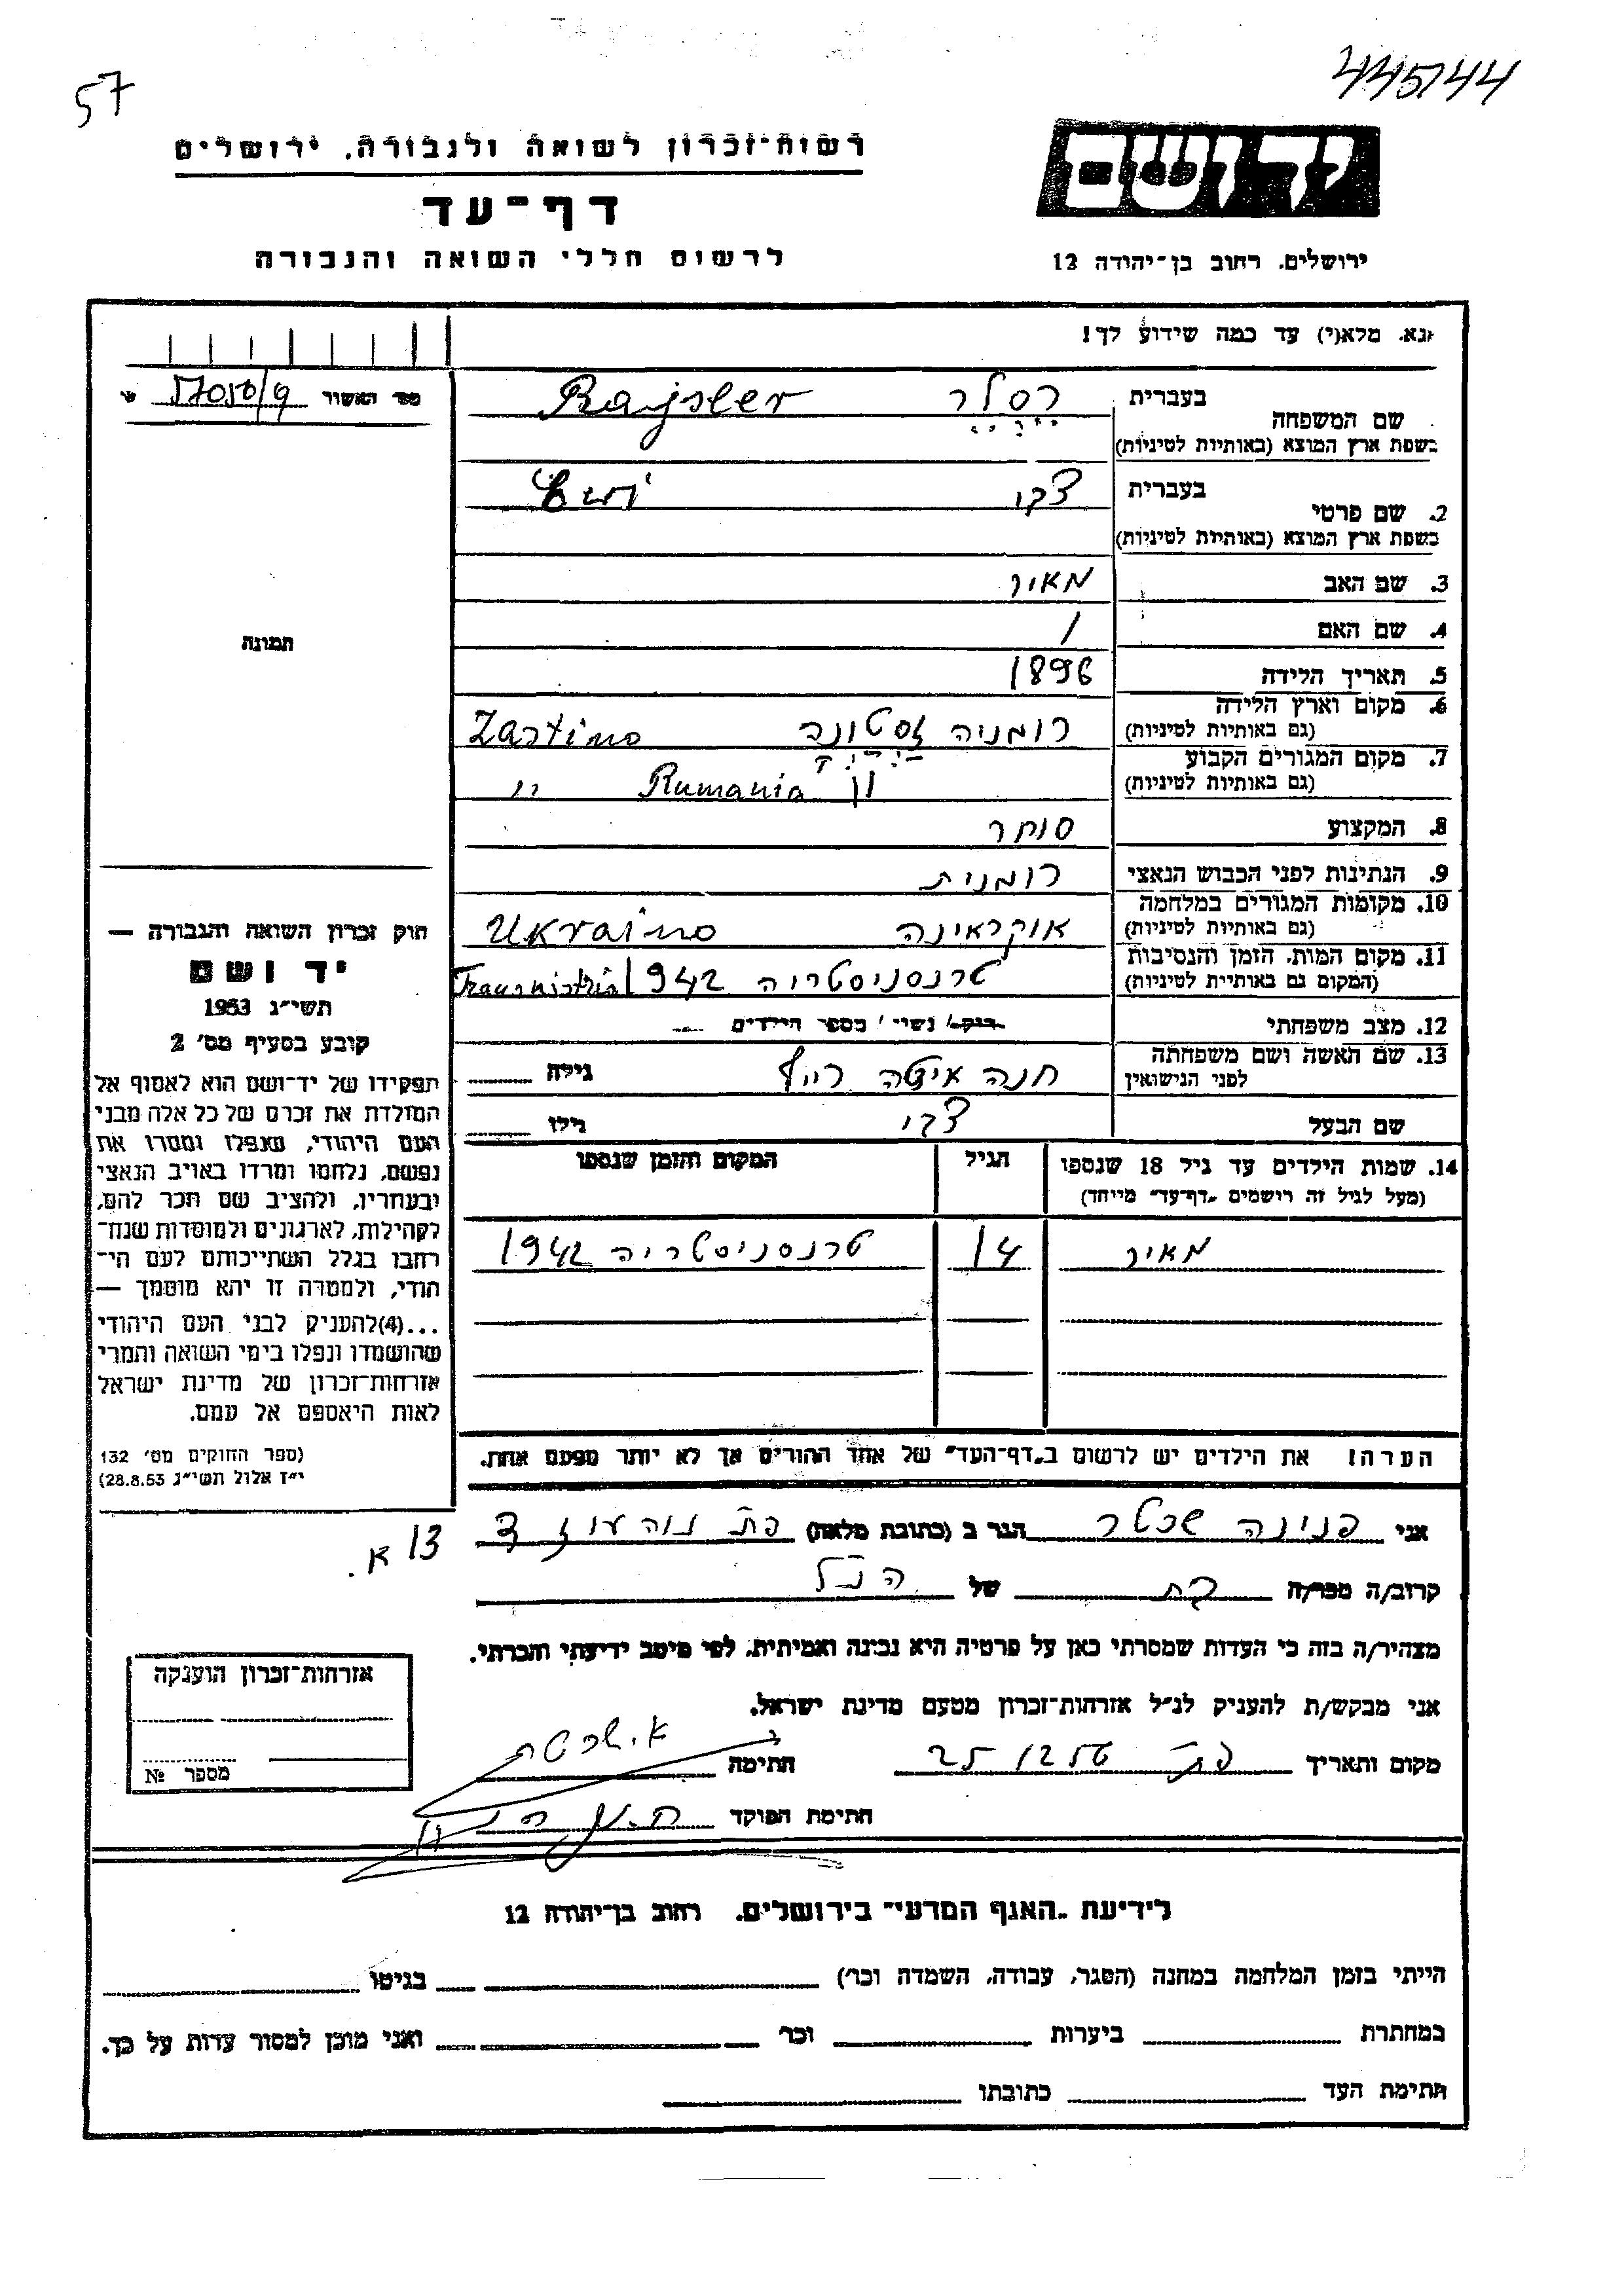 57
445744
רשות-זכרון לשואה ולגבורה, ירושלים
דף-עד
לרשום חללי השואה והגבורה
יד ושם
ירושלים, רחוב בן-יהודה 12
נא. מלא(י) עד כמה שידוע לך!
מס' האשור
57050/9
בעברית רסלר Rajsler
שם המשפחה
בשפת ארץ המוצא (באותיות לטיניות)
בעברית צבי Cwi
2. שם פרטי
בשפת ארץ המוצא (באותיות לטיניות)
3. שם האב מאיר
4. שם האם /
תמונה
5. תאריך הלידה 1896
6. מקום וארץ הלידה רומניה
(גם באותיות לטיניות)
7. מקום המגורים הקבוע " Rumania "
(גם באותיות לטיניות)
8. המקצוע סוחר
9. הנתינות לפני הכבוש הנאצי רומנית
10. מקומות המגורים במלחמה אוקראינה Ukraino
(גם באותיות לטיניות)
11. מקום המות, הזמן והנסיבות טרנסניסטריה 1942 Transnistria
(המקום גם באותיות לטיניות)
12. מצב משפחתי רווק/ נשוי / מספר הילדים
13. שם האשה ושם משפחתה חנה איטה גילה
לפני הנישואין
שם הבעל צבי גילו
חוק זכרון השואה והגבורה —
יד ושם
תשי"ג 1953
קובע בסעיף מס' 2
תפקידו של יד-ושם הוא לאסוף אל
המולדת את זכרם של כל אלה מבני
העם היהודי, שנפלו ומסרו את
נפשם, נלחמו ומרדו באויב הנאצי
ובעוזריו, ולהציב שם וזכר להם,
לקהילות, לארגונים ולמוסדות שנח-
רבו בגלל השתייכותם לעם הי-
הודי, ולמטרה זו יהא מוסמך —
...(4)להעניק לבני העם היהודי
שהושמדו ונפלו בימי השואה והמרי
אזרחות-זכרון של מדינת ישראל
לאות היאספם אל עמם.
(ספר החוקים מס' 132
י"ז אלול תשי"ג 28.8.53)
14. שמות הילדים עד גיל 18 שנספו הגיל המקום והזמן שנספו
(מעל לגיל זה רושמים "דף-עד" מיוחד)
מאיר 14 טרנסניסטריה 1942
הערה! את הילדים יש לרשום ב"דף-העד" של אחד ההורים אך לא יותר מפעם אחת.
אני פנינה שכטר הגר ב (כתובת מלאה) פת נוה עוז ד
13 א.
קרוב/ה מכר/ה בת של הנ"ל
מצהיר/ה בזה כי העדות שמסרתי כאן על פרטיה היא נכונה ואמיתית, לפי מיטב ידיעתי והכרתי.
אני מבקש/ת להעניק לנ"ל אזרחות-זכרון מטעם מדינת ישראל.
מקום ותאריך חתימה
חתימת הפוקד
אזרחות-זכרון הוענקה
מספר №
לידיעת "האגף המדעי" בירושלים, רחוב בן-יהודה 12
הייתי בזמן המלחמה במחנה (הסגר, עבודה, השמדה וכו') בגיטו
במחתרת ביערות וכו' ואני מוכן למסור עדות על כך.
חתימת העד כתובתו